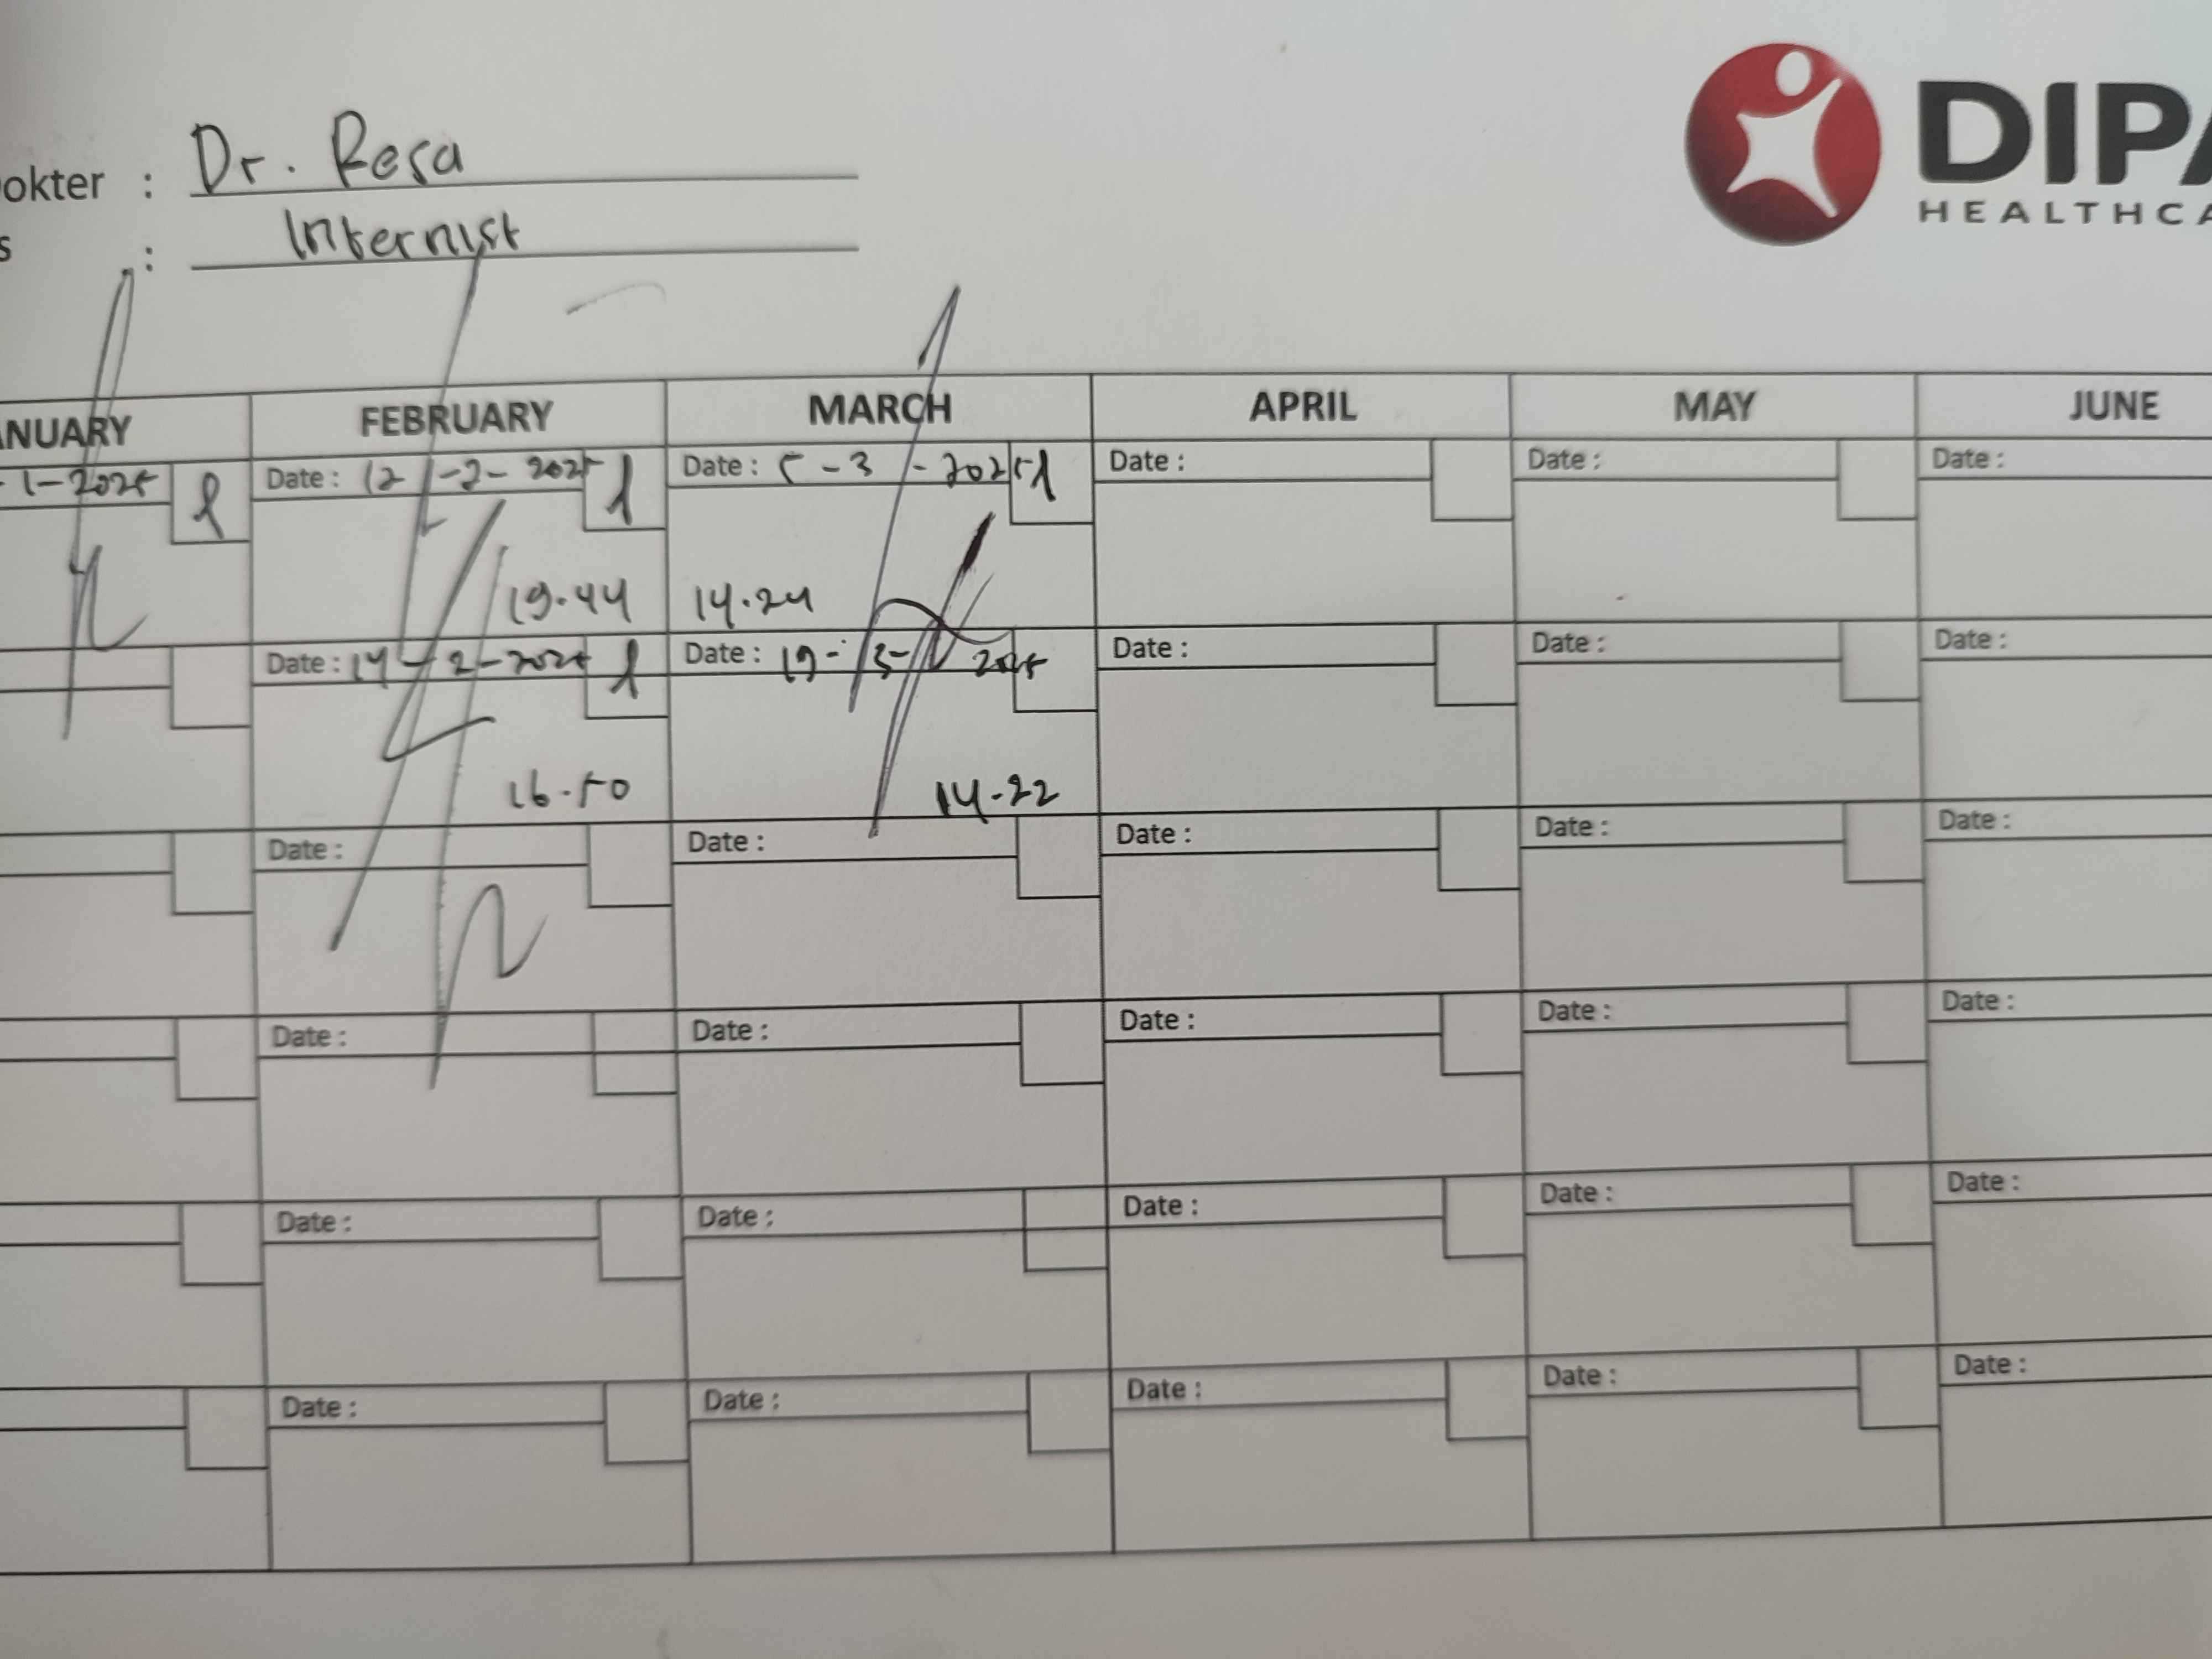 okter : Dr. Resa
s : Internist
DIPA
HEALTHCA
ANUARY FEBRUARY MARCH APRIL MAY JUNE
- 1-2025 Date : 12-2-2025 Date : 5-3-2025 Date : Date : Date :
19.44 14.24
Date : 14-2-2025 Date : 19-3-2025 Date : Date : Date :
16.50 14-22
Date : Date : Date : Date : Date :
Date : Date : Date : Date : Date :
Date : Date : Date : Date : Date :
Date : Date : Date : Date : Date :